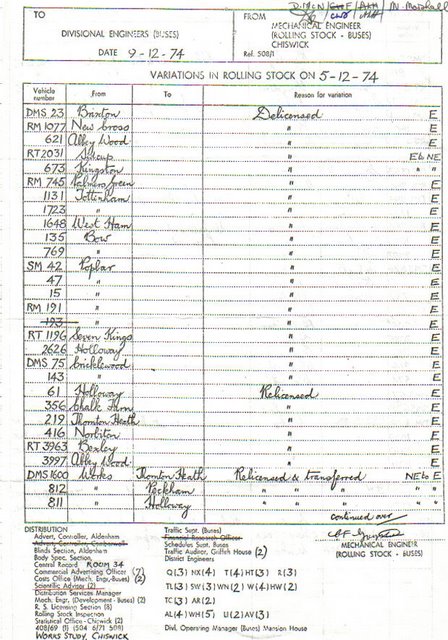 D.MCN/ / / N. Marshall
TO
FROM
DIVISIONAL ENGINEERS (BUSES)
MECHANICAL ENGINEER
(ROLLING STOCK - BUSES)
CHISWICK
DATE 9-12-74
Ref. 508/1
VARIATIONS IN ROLLING STOCK ON 5-12-74
Vehicle number From To Reason for variation
DMS 23 Brixton Delicensed E
RM 1077 New Cross " E
621 Abbey Wood " E
RT 2031 Sidcup " E to NE
673 Kingston " " "
RM 745 Palmers Green " E
1131 Tottenham " E
1723 " " E
1648 West Ham " E
135 Bow " E
769 " " E
SM 42 Poplar " E
47 " " E
15 " " E
RM 191 " " E
193 " " E
RT 1196 Seven Kings " E
2626 Holloway " E
DMS 75 Cricklewood " E
143 " " E
61 Holloway Relicensed E
356 Chalk Farm " E
219 Thornton Heath " E
416 Norbiton " E
RT 3963 Bexley " E
3997 Abbey Wood " E
DMS 1600 Works Thornton Heath Relicensed & transferred NE to E
812 " Peckham " " " " " "
811 " Holloway " " " " " "
continued over
DISTRIBUTION
Advert. Controller, Aldenham
Advert. Controller, Camberwell
Blinds Section, Aldenham
Body Spec. Section,
Central Record ROOM 34
Commercial Advertising Officer (7)
Costs Office (Mech. Engr. Buses) (2)
Scientific Advisor (2)
Distribution Services Manager
Mech. Engr. (Development - Buses) (2)
R. S. Licensing Section (8)
Rolling Stock Inspection
Statistical Office - Chiswick (2)
408/69 (1) 504 6/71 508)
WORKS STUDY, CHISWICK
Traffic Supt. (Buses)
Financial Research Officer
Schedules Supt. Buses
Traffic Auditor, Griffith House (2)
District Engineers
Q(3) HX(4) T(4) HT(3) R(3)
TL(3) SW(3) WN(2) W(4) HW(2)
TC(3) AR(2)
AL(4) WH(5) U(2) AV(3)
Divl. Operating Manager (Buses) Mansion House
MECHANICAL ENGINEER
(ROLLING STOCK - BUSES)